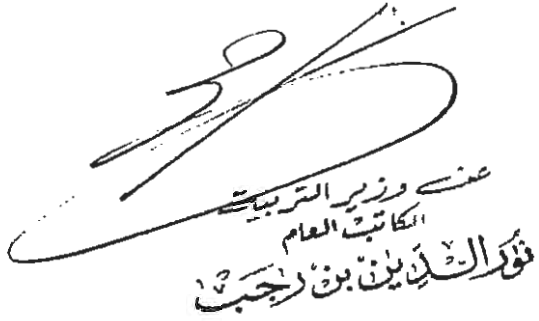 عن وزير التربية
الكاتب العام
نُورَ الدِّينْ بنْ رَجَبْ